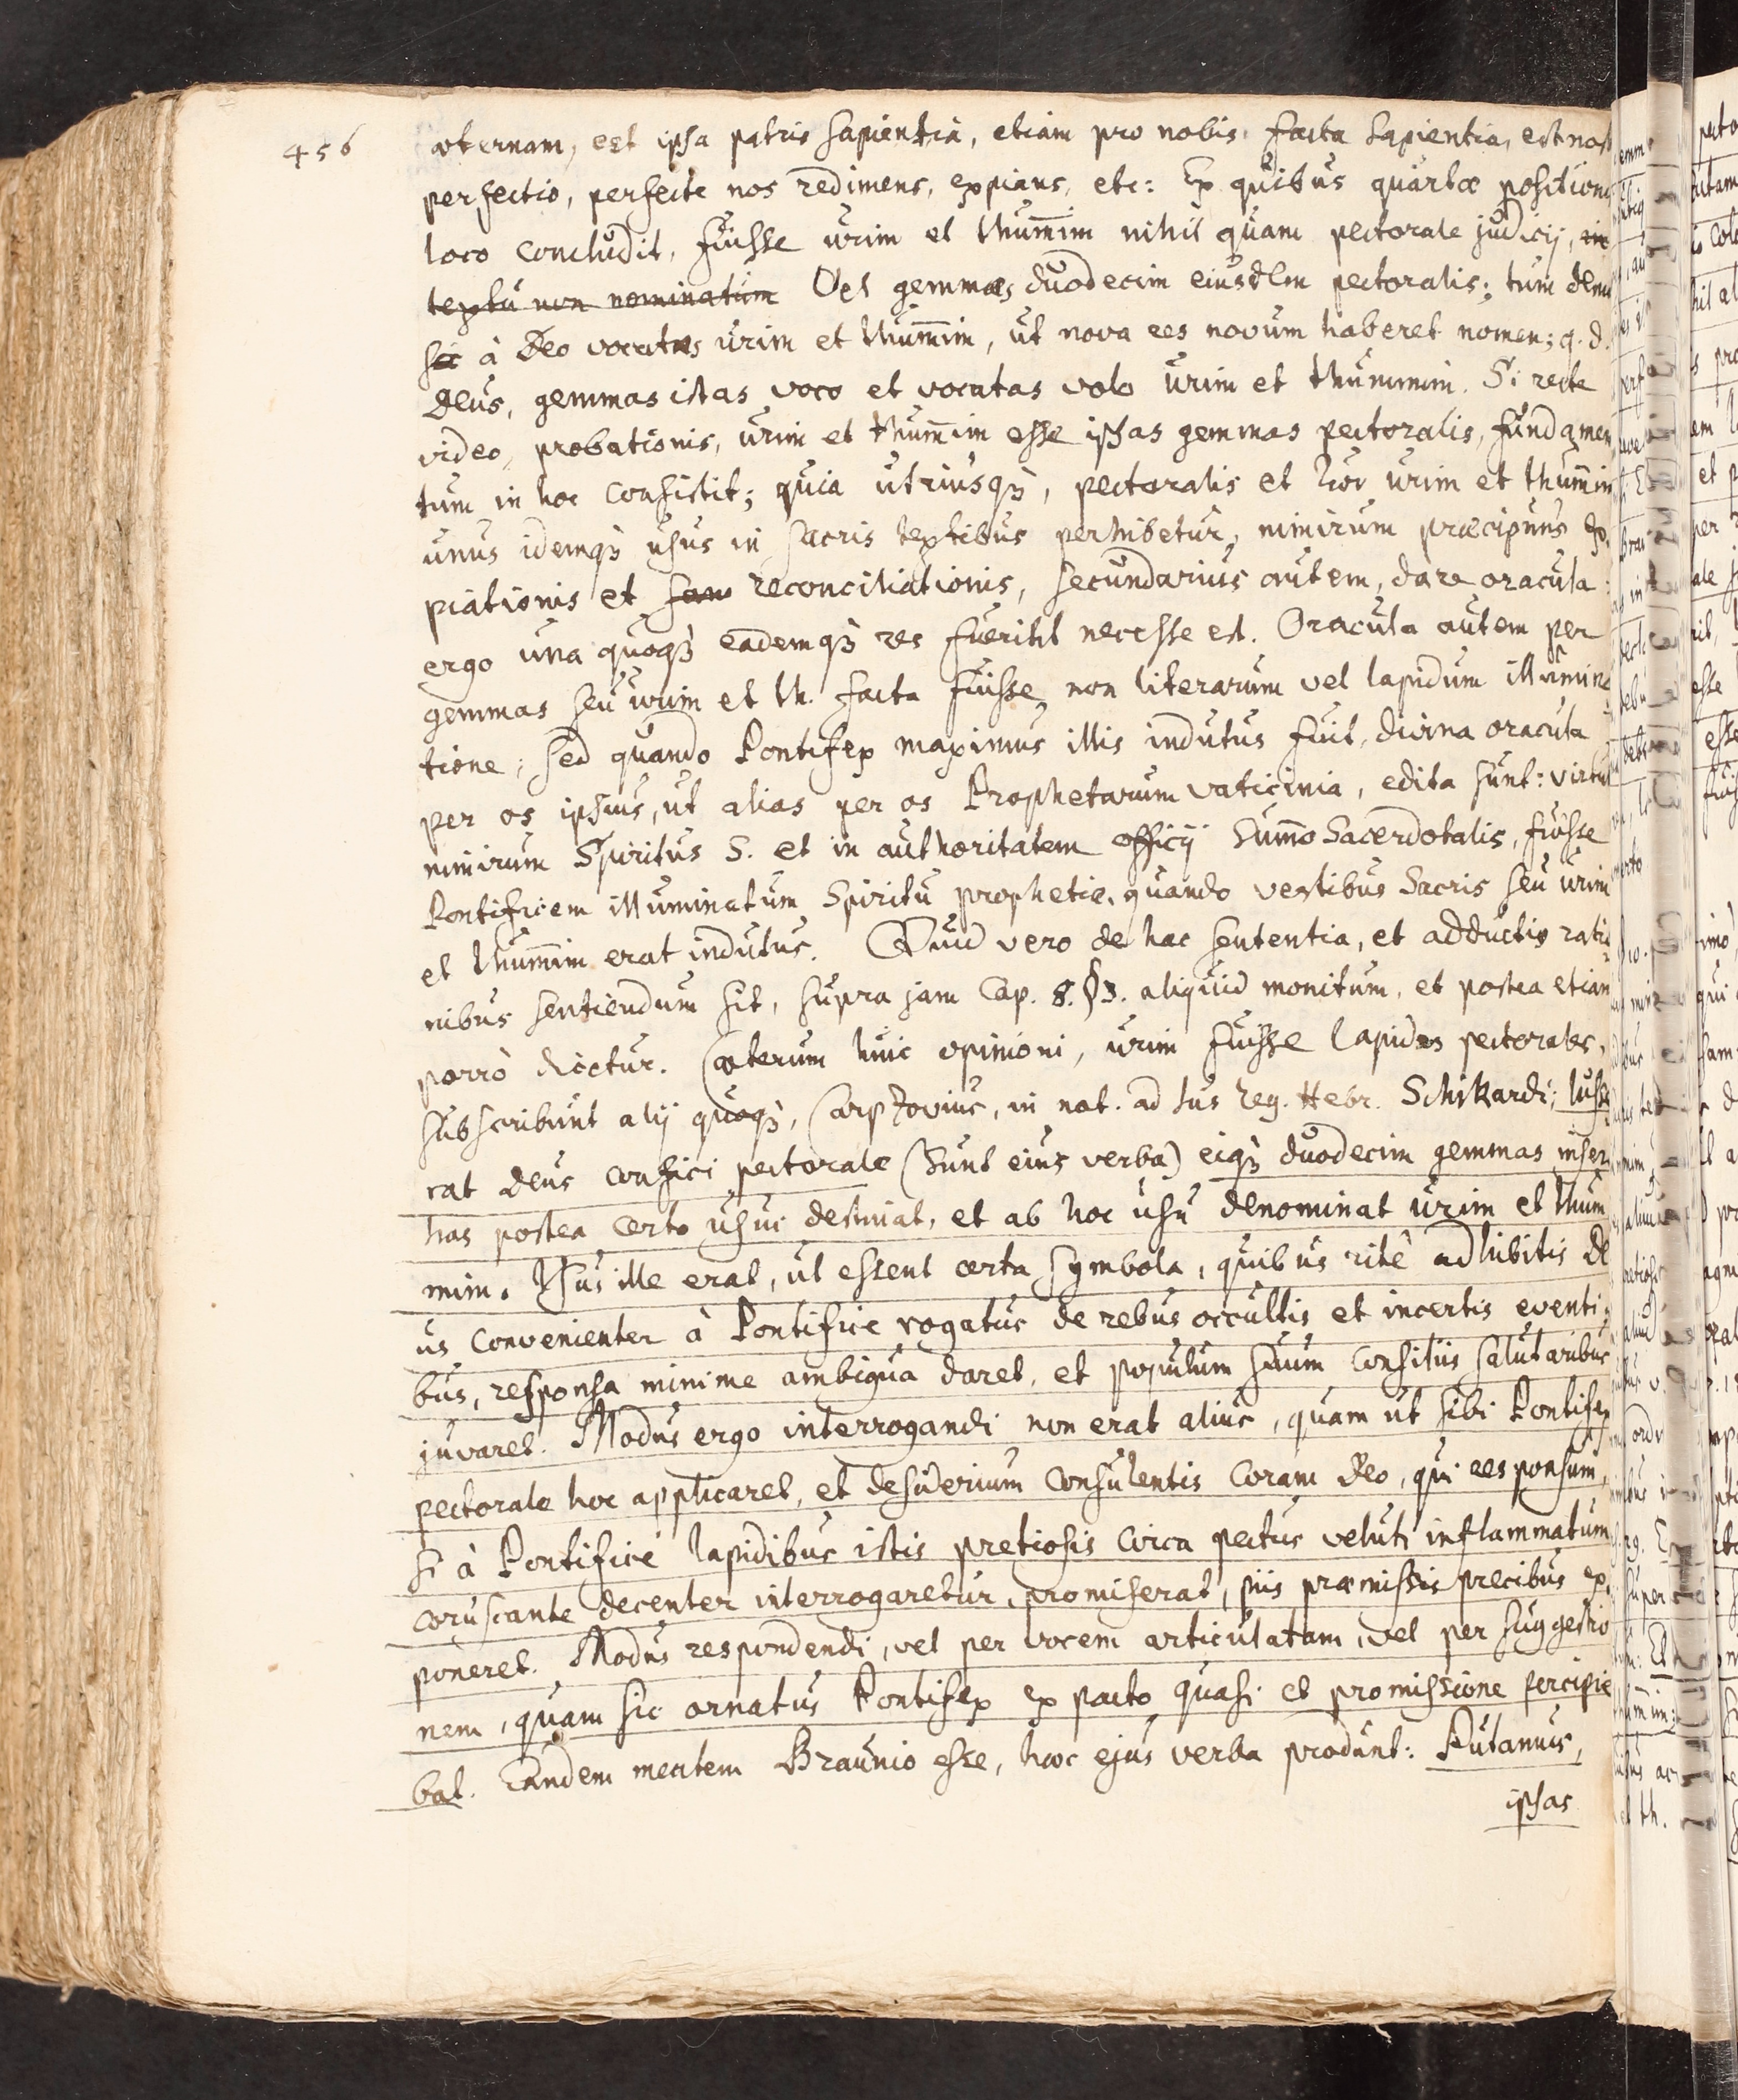 456
æternam, est ipsa patris sapientia, etiam pro nobis facta sapientia, est nost
perfectio, perfecte nos redimens, expians, etc: Ex quibus quartæ position
loco concludit, fuisse urim et thum̄im nihil quam pectorale judicij, in
textu non nominatum Vel gemmas duodecim eiusdem pectoralis; tum demu
sic à Deo vocatas urim et thum̄im, ut nova res novum haberet nomen; q. d.
Deus, gemmas istas voco et vocatas volo urim et thummim. Si recte
video, probationis, urim et thum̄im esse ipsas gemmas pectoralis, fundamen
tum in hoc consistit; quia utriusqꝫ, pectoralis et τῶν urim et thum̄im
unus idemqꝫ usus in sacris textibus perhibetur, nimirum præcipuus ex,
piationis et sane reconciliationis, secundarius autem, dare oracula:
ergo una quoqꝫ eademqꝫ res fuerint necesse est. Oracula autem per
gemmas seu urim et th. facta fuisse, non literarum vel lapidum illumina
tione; sed quando Pontifex maximus illis indutus fuit, divina oracula
per os ipsius, ut alias per os Prophetarum vaticinia, edita sunt: virtut
nimirum Spiritus S. et in authoritatem officij Sum̄o Sacerdotalis, fuisse
Pontificem illuminatum Spiritu prophetiæ, quando vestibus Sacris seu urim
et thum̄im erat indutus. Quid vero de hac sententia, et adductis ratio
nibus sentiendum sit, supra jam Cap. 8. § 3. aliquid monitum, et postea etiam
porrò dicetur. Cæterum huic opinioni, urim fuisse lapides pectorales,
subscribunt alij quoqꝫ, Carpzovius, in not. ad Jus reg. Hebr. Schikardi; Jusse
rat Deus confici pectorale (sunt eius verba) eiqꝫ duodecim gemmas inseri
has postea certo usui destinat, et ab hoc usu denominat urim et thum
mim. Usus ille erat, ut essent certa symbola, quibus ritè adhibitis De
us convenienter à Pontifice rogatus de rebus occultis et incertis eventi,
bus, responsa minime ambigua daret, et populum suum consiliis salutaribus
juvaret. Modus ergo interrogandi non erat alius, quam ut sibi Pontifex
pectorale hoc applicaret, et desiderium consulentis coram Deo, qui responsum,
si à Pontifice lapidibus istis pretiosis circa pectus veluti inflammatum
coruscante decenter interrogaretur, promiserat, piis præmissis precibus ex,
poneret. Modus respondendi, vel per vocem articulatam, vel per suggestio
nem, quam sic ornatus Pontifex ex pacto quasi et promissione percipie
bat. Eandem mentem Braunio esse, hæc ejus verba produnt: Putamus,
ipsas